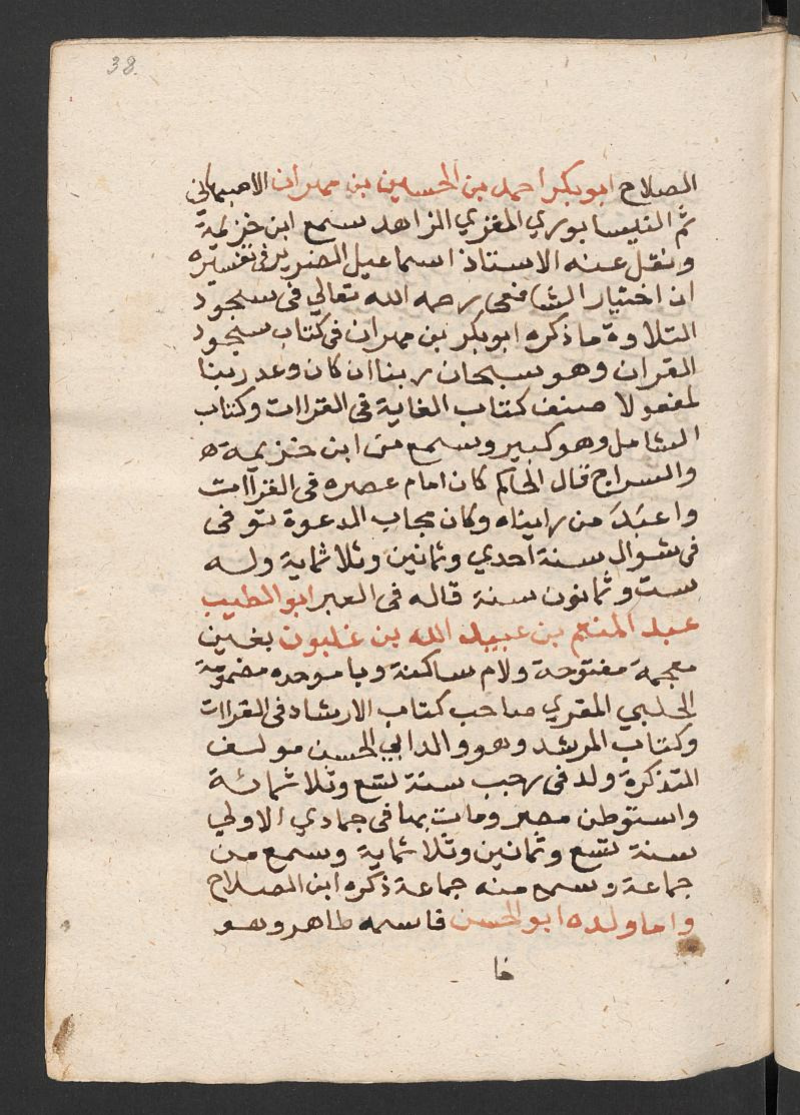 38.
الصلاح ابو بكر احمد بن الحسين بن مهران الاصبهاني
ثم النيسابوري المقري الزاهد سمع ابن خزيمة
ونقل عنه الاستاذ اسماعيل الضرير في تفسيره
ان اختيار الشافعي رحمه الله تعالي في سجود
التلاوة ما ذكره ابو بكر بن مهران في كتاب سجود
القران وهو سبحان ربنا ان كان وعد ربنا
لمفعولا صنف كتاب الغاية في القراات وكتاب
الشامل وهو كبير وسمع من ابن خزيمة
والسراج قال الحاكم كان امام عصره في القراآت
واعبَدَ من رايناه وكان مجاب الدعوة توفى
في شوال سنة احدي وثمانين وثلاثماية وله
ست وثمانون سنة قاله في العبر ابو الطيب
عبد المنعم بن عبيد الله بن غلبون بغين
معجمة مفتوحة ولام ساكنة وبا موحده مضمومة
الحلبي المقري صاحب كتاب الارشاد في القراات
وكتاب المرشد وهو والد ابي الحسن مولف
التذكرة ولد في رجب سنة تسع وثلاثمائة
واستوطن مصر ومات بها في جمادي الاولي
سنة تسع وثمانين وثلاثماية وسمع من
جماعة وسمع منه جماعة ذكره ابن الصلاح
واما ولده ابو الحسن فاسمه طاهر وهو